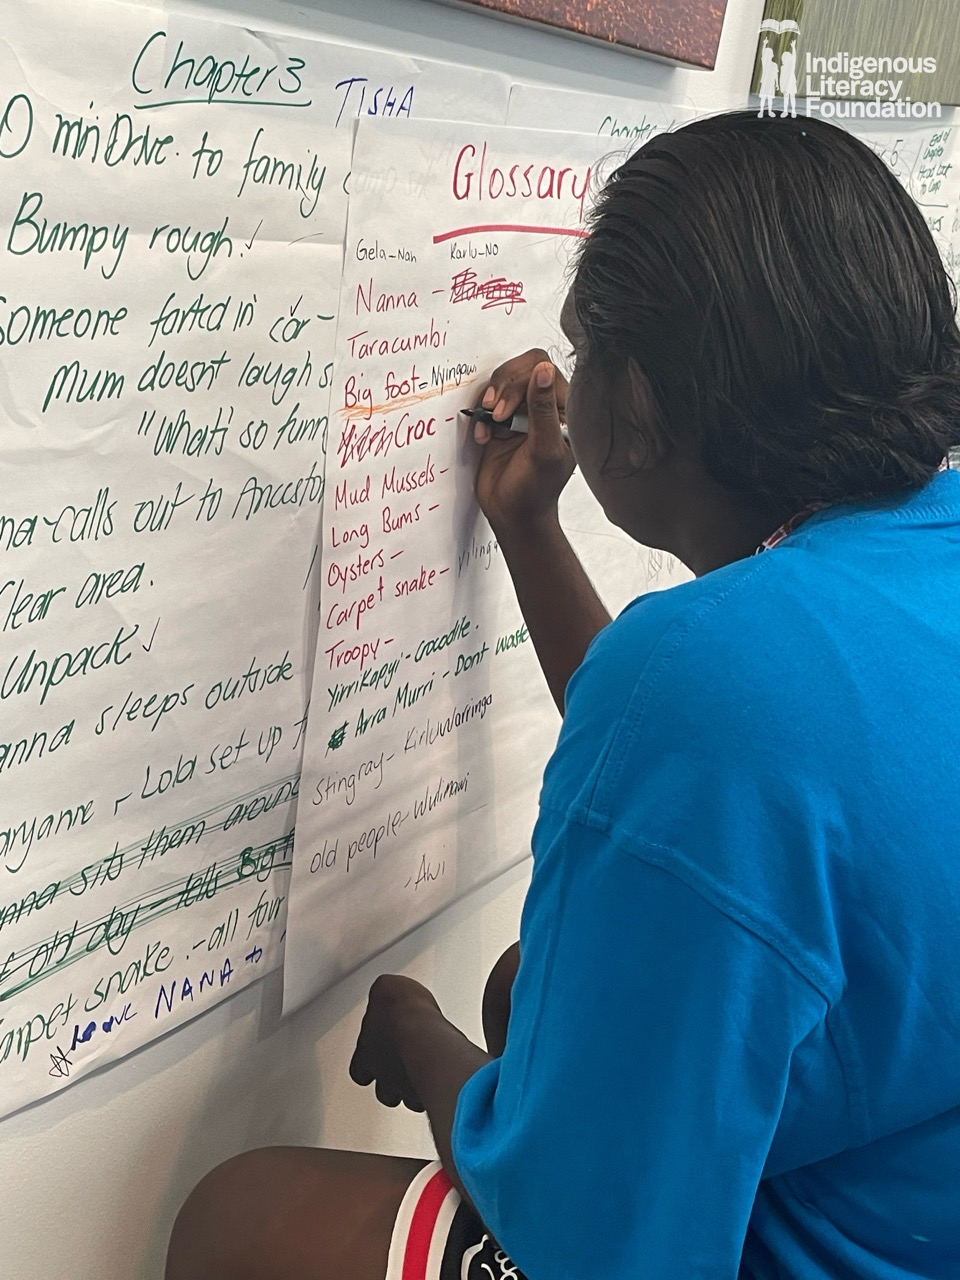 Indigenous
Literacy
Foundation
Chapter 3
TISHA
0 min Drive. to family
Bumpy rough. ✓
Someone farted in car - ✓
Mum doesnt laugh
"What's so funn
na-calls out to Ancesto
Clear area.
Unpack ✓
anna sleeps outside
aryanne - Lola set up
nna sits them around
old day - tells Big
arpet snake. - all four
NANA to
Glossary
Gela-Nah Karlu-No
Nanna -
Taracumbi
Big foot = Nyingawi
Croc -
Mud Mussels -
Long Bums -
Oysters -
Carpet snake - Yilinga
Troopy -
Yirrikapyi - crocodile.
Arra Murri - Dont waste
Stingray - Kirluwarringa
old people - Wulimawi
- Awi
Chapter
5
End of
Chapter
Head back
to Camp